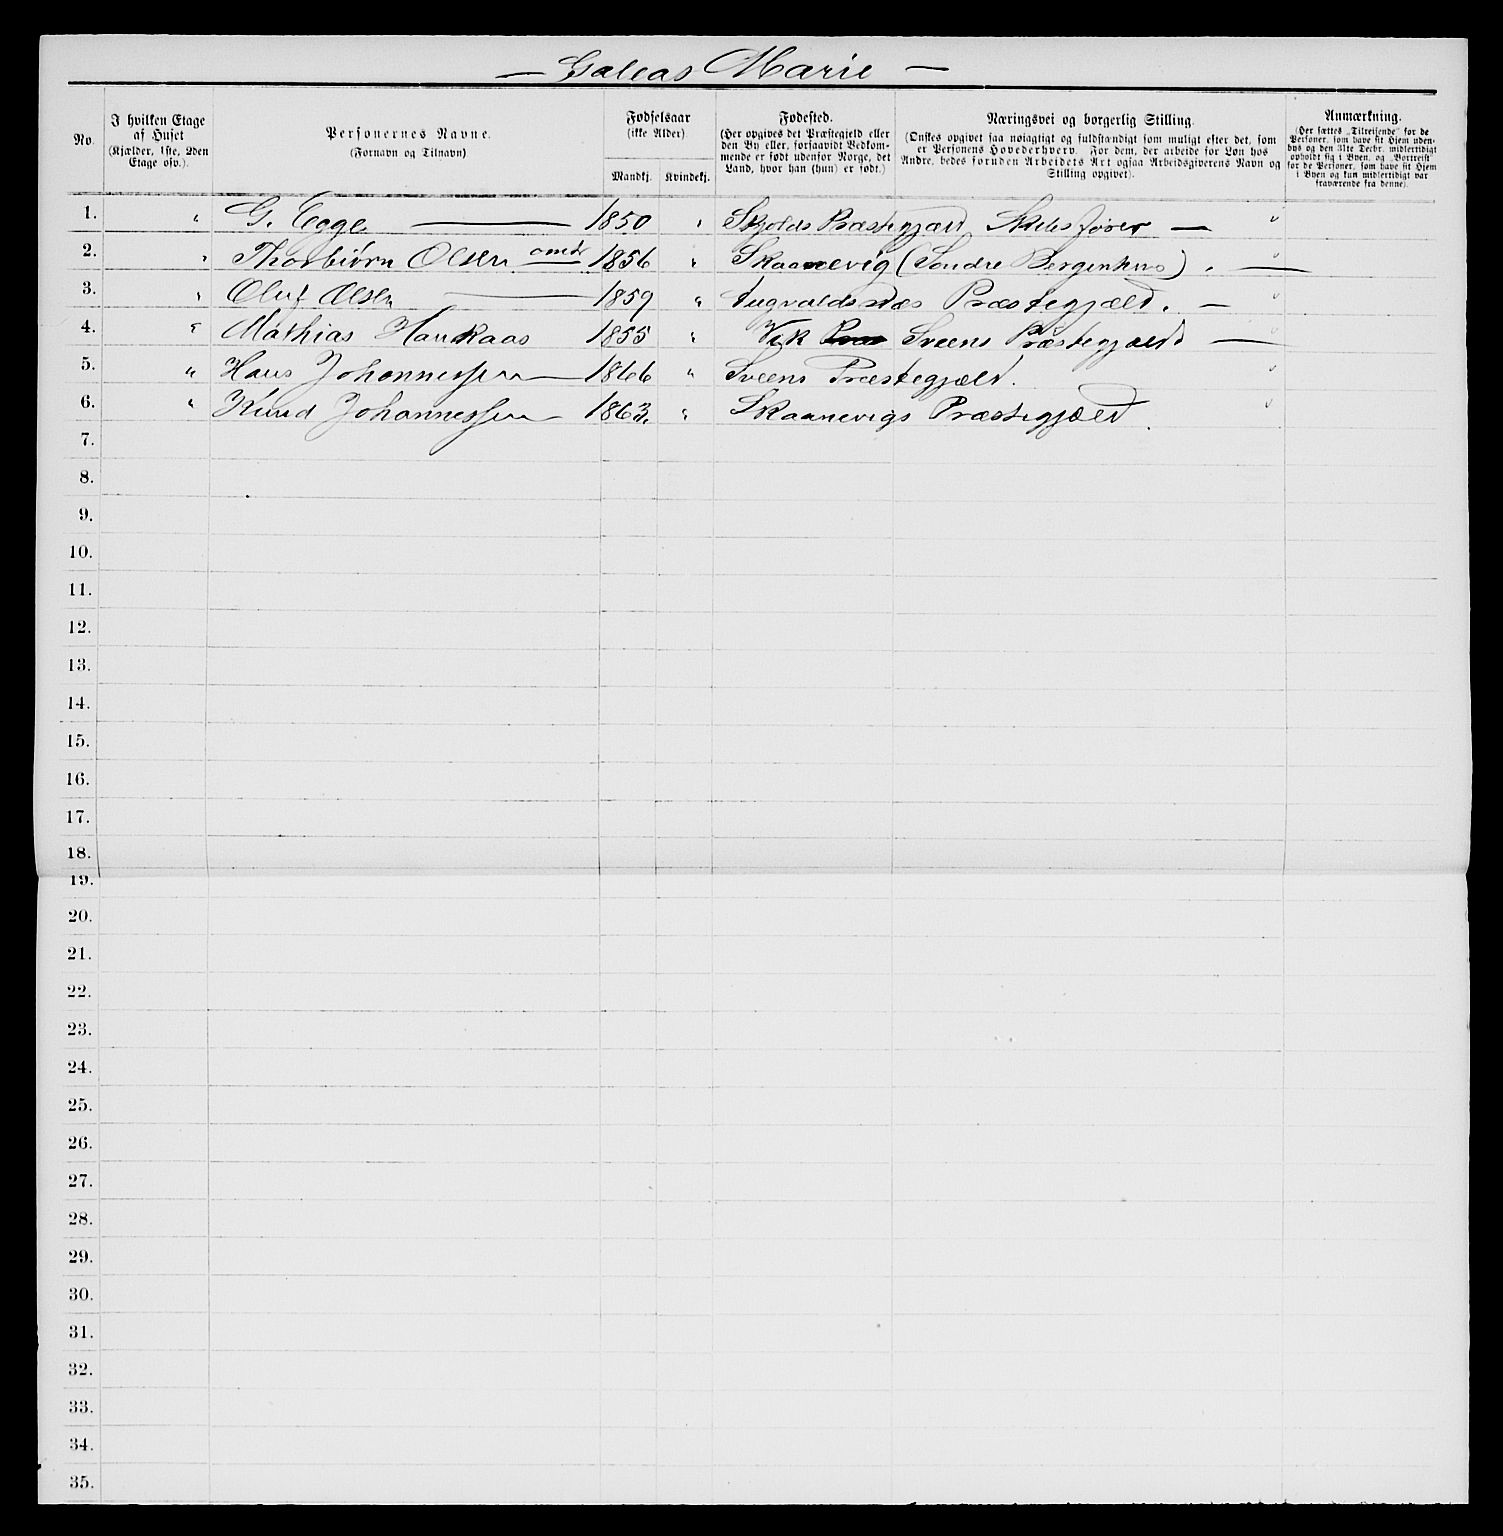 — Galeas Marie —
No. I hvilken Etage af Huset (Kjælder, 1ste, 2den Etage osv.). Personernes Navne. (Fornavn og Tilnavn) Fødselsaar (ikke Alder). Mandkj. Kvindekj. Fødested. (Her opgives det Præstegjeld eller den By eller, forsaavidt Vedkommende er født udenfor Norge, det Land, hvor han (hun) er født.) Næringsvei og borgerlig Stilling. (Ønskes opgivet saa nøiagtigt og fuldstændigt som muligt efter det, som er Personens Hovederhverv. For dem, der arbeide for Løn hos Andre, bedes foruden Arbeidets Art ogsaa Arbeidsgiverens Navn og Stilling opgivet). Anmærkning. (Her sættes „Tilreisende" for de Personer, som have sit Hjem udenbys og den 31te Decbr. midlertidigt opholdt sig i Byen, og „Bortreist" for de Personer, som have sit Hjem i Byen og kun midlertidigt var fraværende fra denne).
1. " G. Egge — 1850 " Skjolds Præstegjæld Skibsfører — "
2. " Thorbiørn Olsen 1856 " Skaanevig (Söndre Bergenhus). — "
3. " Oluf Olsen — 1859 " Augvaldsnæs Præstegjæld. — "
4. " Mathias Haukaas 1855 " Vik Sveens Præstegjæld — "
5. " Hans Johannessen — 1866 " Sveens Præstegjæld. "
6. " Knud Johannessen — 1863. " Skaanevigs Præstegjæld. "
7.
8.
9.
10.
11.
12.
13.
14.
15.
16.
17.
18.
19.
20.
21.
22.
23.
24.
25.
26.
27.
28.
29.
30.
31.
32.
33.
34.
35.